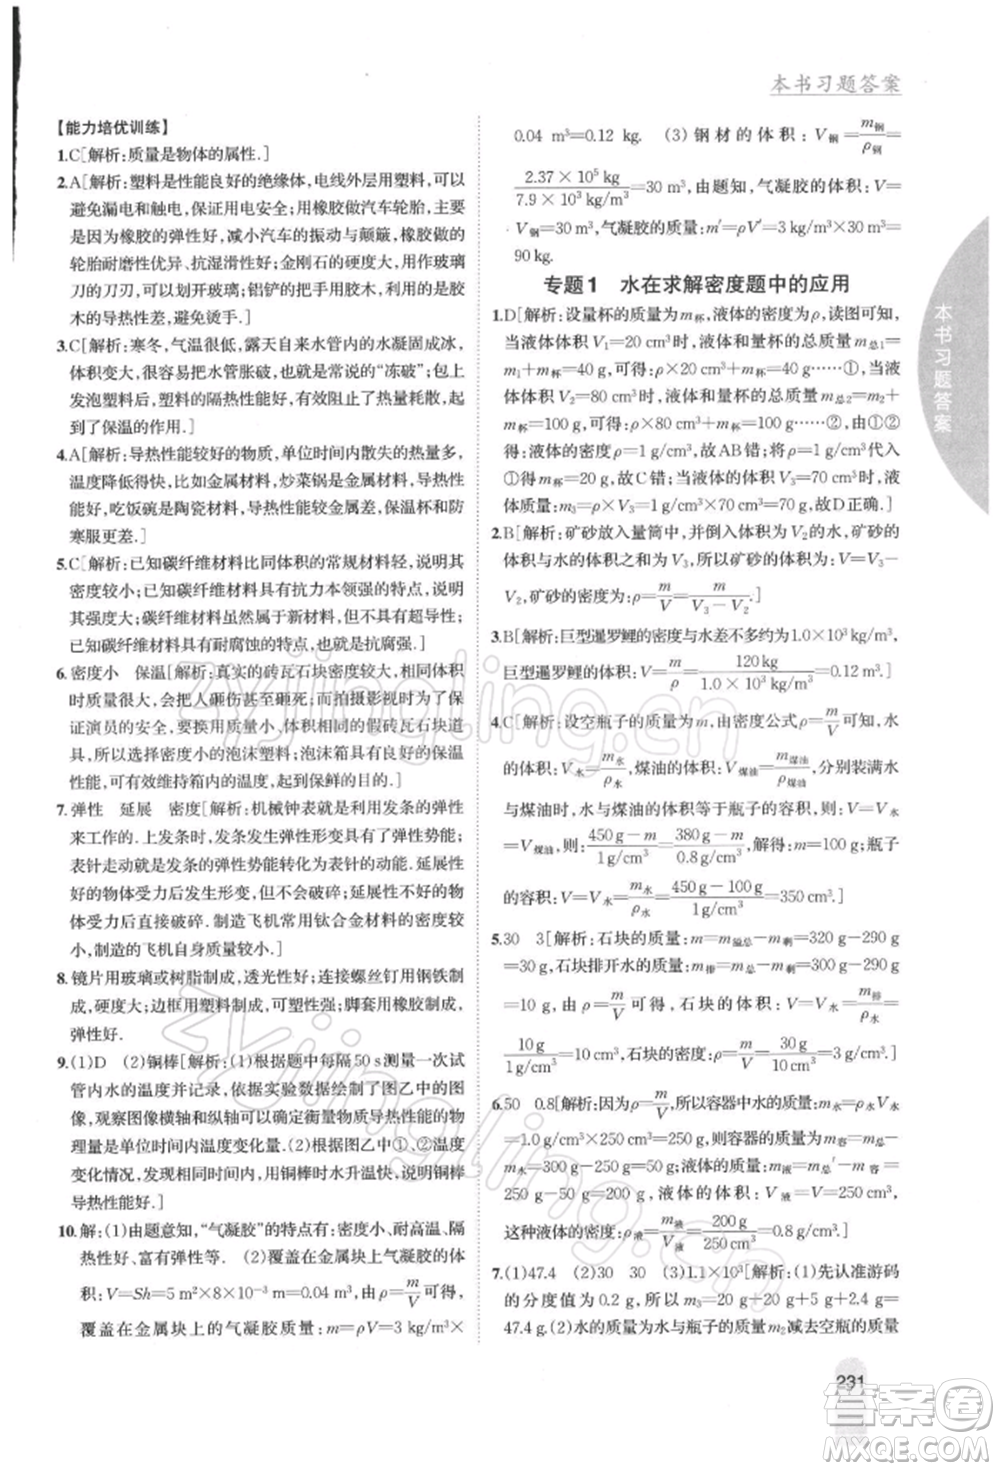 本书习题答案
【能力培优训练】
1.C[解析:质量是物体的属性.]
2.A[解析:塑料是性能良好的绝缘体,电线外层用塑料,可以
避免漏电和触电,保证用电安全;用橡胶做汽车轮胎,主要
是因为橡胶的弹性好,减小汽车的振动与颠簸,橡胶轮
胎耐磨性优异、抗湿滑性好;金刚石的硬度大,玻璃
刀的刀刃,可以用来切割玻璃;铝铲的把手用胶木,胶
木的导热性差,避免烫手.]
3.C[解析:寒冬,气温很低,露天自来水管中的水凝固成冰,
体积变大,把自来水管胀破,这就是“冻破”;包上
发泡塑料后,塑料的隔热性能好,有效阻止了热量耗散,
起到了保温的作用.]
4.A[解析:导热性能较好的物质,单位时间内散失的热量多,
温度降低得快,比如金属材料,炒菜锅是金属材料导热性能
好,吃饭碗是陶瓷材料,导热性能较金属差,保暖内衣和防
寒服更差.]
5.C[解析:已知碳纤维材料比同体积的常规材料轻,说明其
密度较小;根据碳纤维材料具有抗力本领强的特点,说明
其强度大;碳纤维材料虽然属于新材料,但熔点不一定低;
已知碳纤维材料有耐腐蚀的特点,也就是抗腐强.]
6.密度小 保温[解析:真实的砖瓦石块密度较大,相同体积
时质量很大,会把人砸伤甚至砸死;而拍摄影视时为了保
证演员的安全,要换用质量小、体积相同的假砖瓦石块道
具,所以选择密度小的泡沫塑料;泡沫箱具有良好的保温
性能,可有效维持箱内的低温,起到了保鲜的目的.]
7.弹性 延展 密度[解析:机械钟表就是利用发条的弹性
来工作的.上发条时,发条发生弹性形变具有了弹性势能;
表针走动就是发条的弹性势能转化为表针的动能.延展性
好的物体受力后发生变形,但不会破碎;延展性不好的物
体受力后直接破碎.制造飞机常用钛合金材料的密度较
小,制造的飞机自身质量较小.]
8.镜片用玻璃或树脂制成,透光性好;连接螺丝钉用钢铁制
成,硬度大;边框用塑料制成,密度小;脚套用橡胶制成,
弹性好.
9.(1)D (2)铜棒[解析:(1)根据题中每隔50 s测量一次试
管内水的温度并记录,依据实验数据绘制了图乙中的图
像,观察图像横轴和纵轴可以确定衡量物质导热性能的物
理量是单位时间内温度变化量.(2)根据图乙中①、②温度
变化相同时,所用时间的长短,用铜棒时水升温快,说明铜棒
导热性能好.]
10.解:(1)由题意知,“气凝胶”的特点有:密度小、耐高温、隔
热性好、富有弹性等. (2)覆盖在金属块上气凝胶的体
积:V=Sh=5 m²×8×10⁻³ m=0.04 m³,由ρ=m/V可得,
覆盖在金属块上的气凝胶质量:m=ρV=3 kg/m³×
0.04 m³=0.12 kg. (3)钢材的体积:V钢=m钢/ρ钢=
2.37×10⁵ kg/7.9×10³ kg/m³=30 m³,由题知,气凝胶的体积:V=
V钢=30 m³,气凝胶的质量:m′=ρV′=3 kg/m³×30 m³=
90 kg.
专题1 水在求解密度题中的应用
1.D[解析:设量杯的质量为m杯,液体的密度为ρ,读图可知,
当液体体积V₁=20 cm³时,液体和量杯的总质量m总1=
m₁+m杯=40 g,可得:ρ×20 cm³+m杯=40 g……①,当液
体体积V₂=80 cm³时,液体和量杯的总质量m总2=m₂+
m杯=100 g,可得:ρ×80 cm³+m杯=100 g……②,由①②
得:液体的密度ρ=1 g/cm³,故AB错;将ρ的值代入
①得,m杯=20 g,故C错;当液体的体积V₃=70 cm³时,液
体质量:m₃=ρ×V₃=1 g/cm³×70 cm³=70 g,故D正确.]
2.B[解析:矿砂放入量筒中,并倒入体积为V₂的水,矿砂的
体积与水的体积之和为V₃,所以矿砂的体积:V=V₃-
V₂,矿砂的密度为:ρ=m/V=m/(V₃-V₂).]
3.B[解析:巨型暹罗鲤的密度与水差不多约为1.0×10³ kg/m³,
巨型暹罗鲤的体积:V=m/ρ=120 kg/1.0×10³ kg/m³=0.12 m³.]
4.C[解析:设空瓶子的质量为m,由密度公式ρ=m/V可知,水
的体积:V水=m水/ρ水,煤油的体积:V煤油=m煤油/ρ煤油,分别装满水
与煤油时,水与煤油的体积等于瓶子的容积,则:V水=
V煤油,则:(450 g-m)/1 g/cm³=(380 g-m)/0.8 g/cm³,解得:m=100 g;瓶子
的容积:V=V水=m水/ρ水=(450 g-100 g)/1 g/cm³=350 cm³.]
5.30 3[解析:石块的质量:m=m溢总-m剩=320 g-290 g
=30 g,石块排开水的质量:m排=m总-m剩=300 g-290 g
=10 g,由ρ=m/V可得,石块的体积:V=V排=m排/ρ水=
10 g/1 g/cm³=10 cm³,石块的密度:ρ=m/V=30 g/10 cm³=3 g/cm³.]
6.50 0.8[解析:由ρ=m/V可得,所以容器中水的体积V水=
m水/ρ水=250 g/1.0 g/cm³=250 cm³,则容器的质量m容=m总-m水=300 g-
250 g=50 g;液体的质量:m液=m总′-m容=
250 g-50 g=200 g,液体的体积:V液=V水=250 cm³,
这种液体的密度:ρ液=m液/V液=200 g/250 cm³=0.8 g/cm³.]
7.(1)47.4 (2)30 30 (3)1.1×10³[解析:(1)先认准游码
的分度值为0.2 g,所以m₃=20 g+20 g+5 g+2.4 g=
47.4 g.(2)水的质量为水与瓶子的质量m₂减去空瓶的质量
本书习题答案
231
zyjingling.cn
zyjingling.cn
答案圈
MXQE.COM